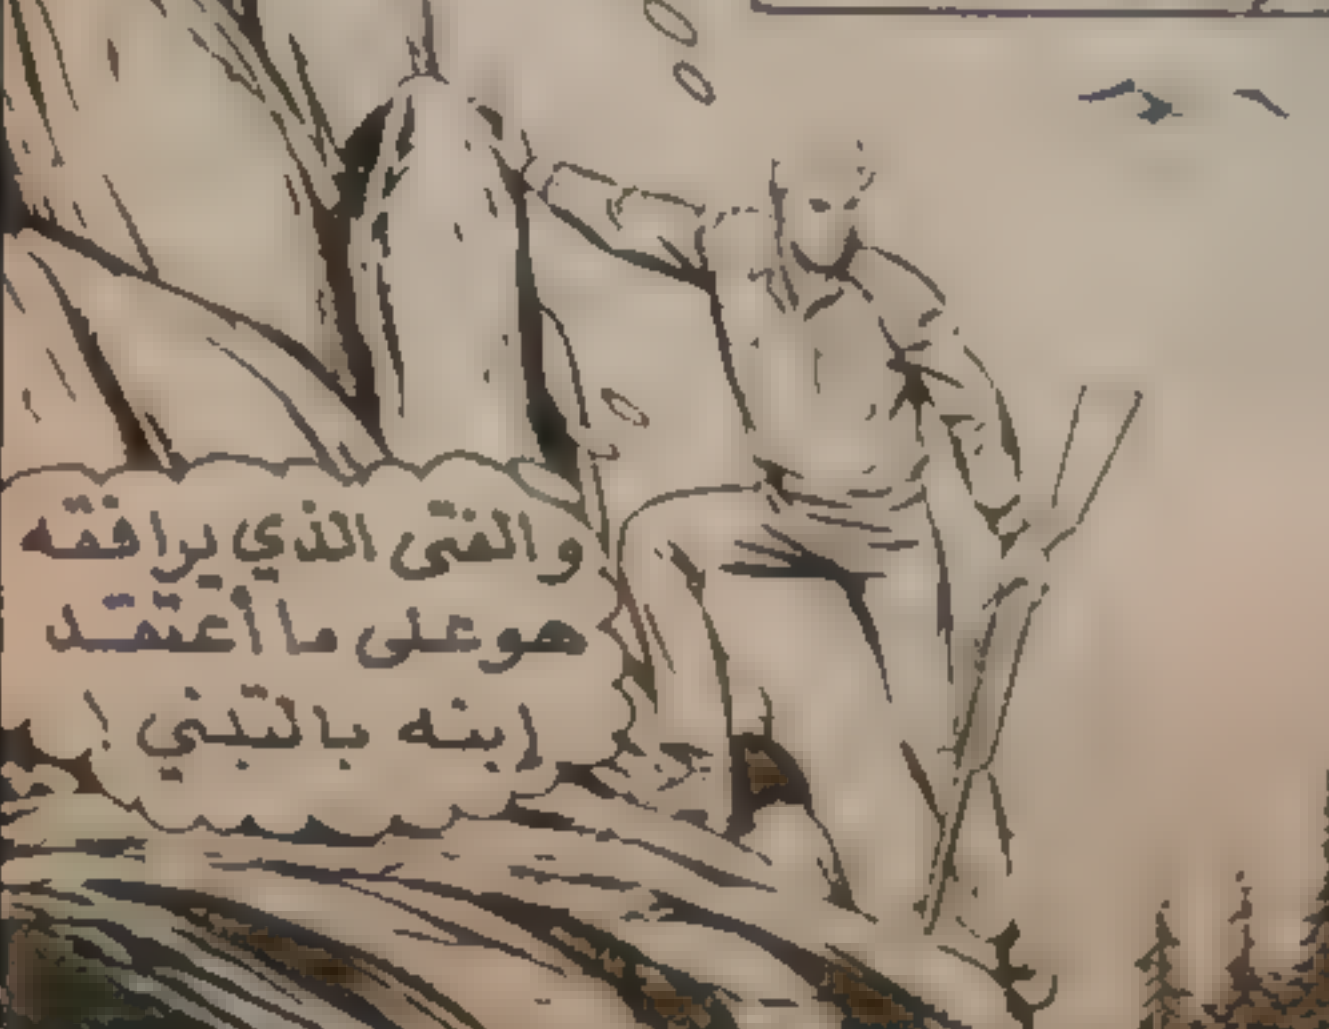 والفتى الذي يرافقه
هو على ما أعتقد
إبنه بالتبني !